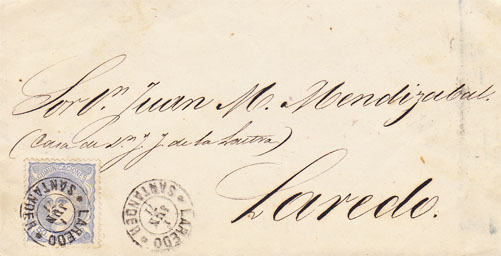 Sor Dn Juan M. Mendizabal.
(Casa de Dn J. J. de la Lastra)
Laredo.
COMUNICACIONES
LAREDO
SANTANDER
LAREDO
SANTANDER